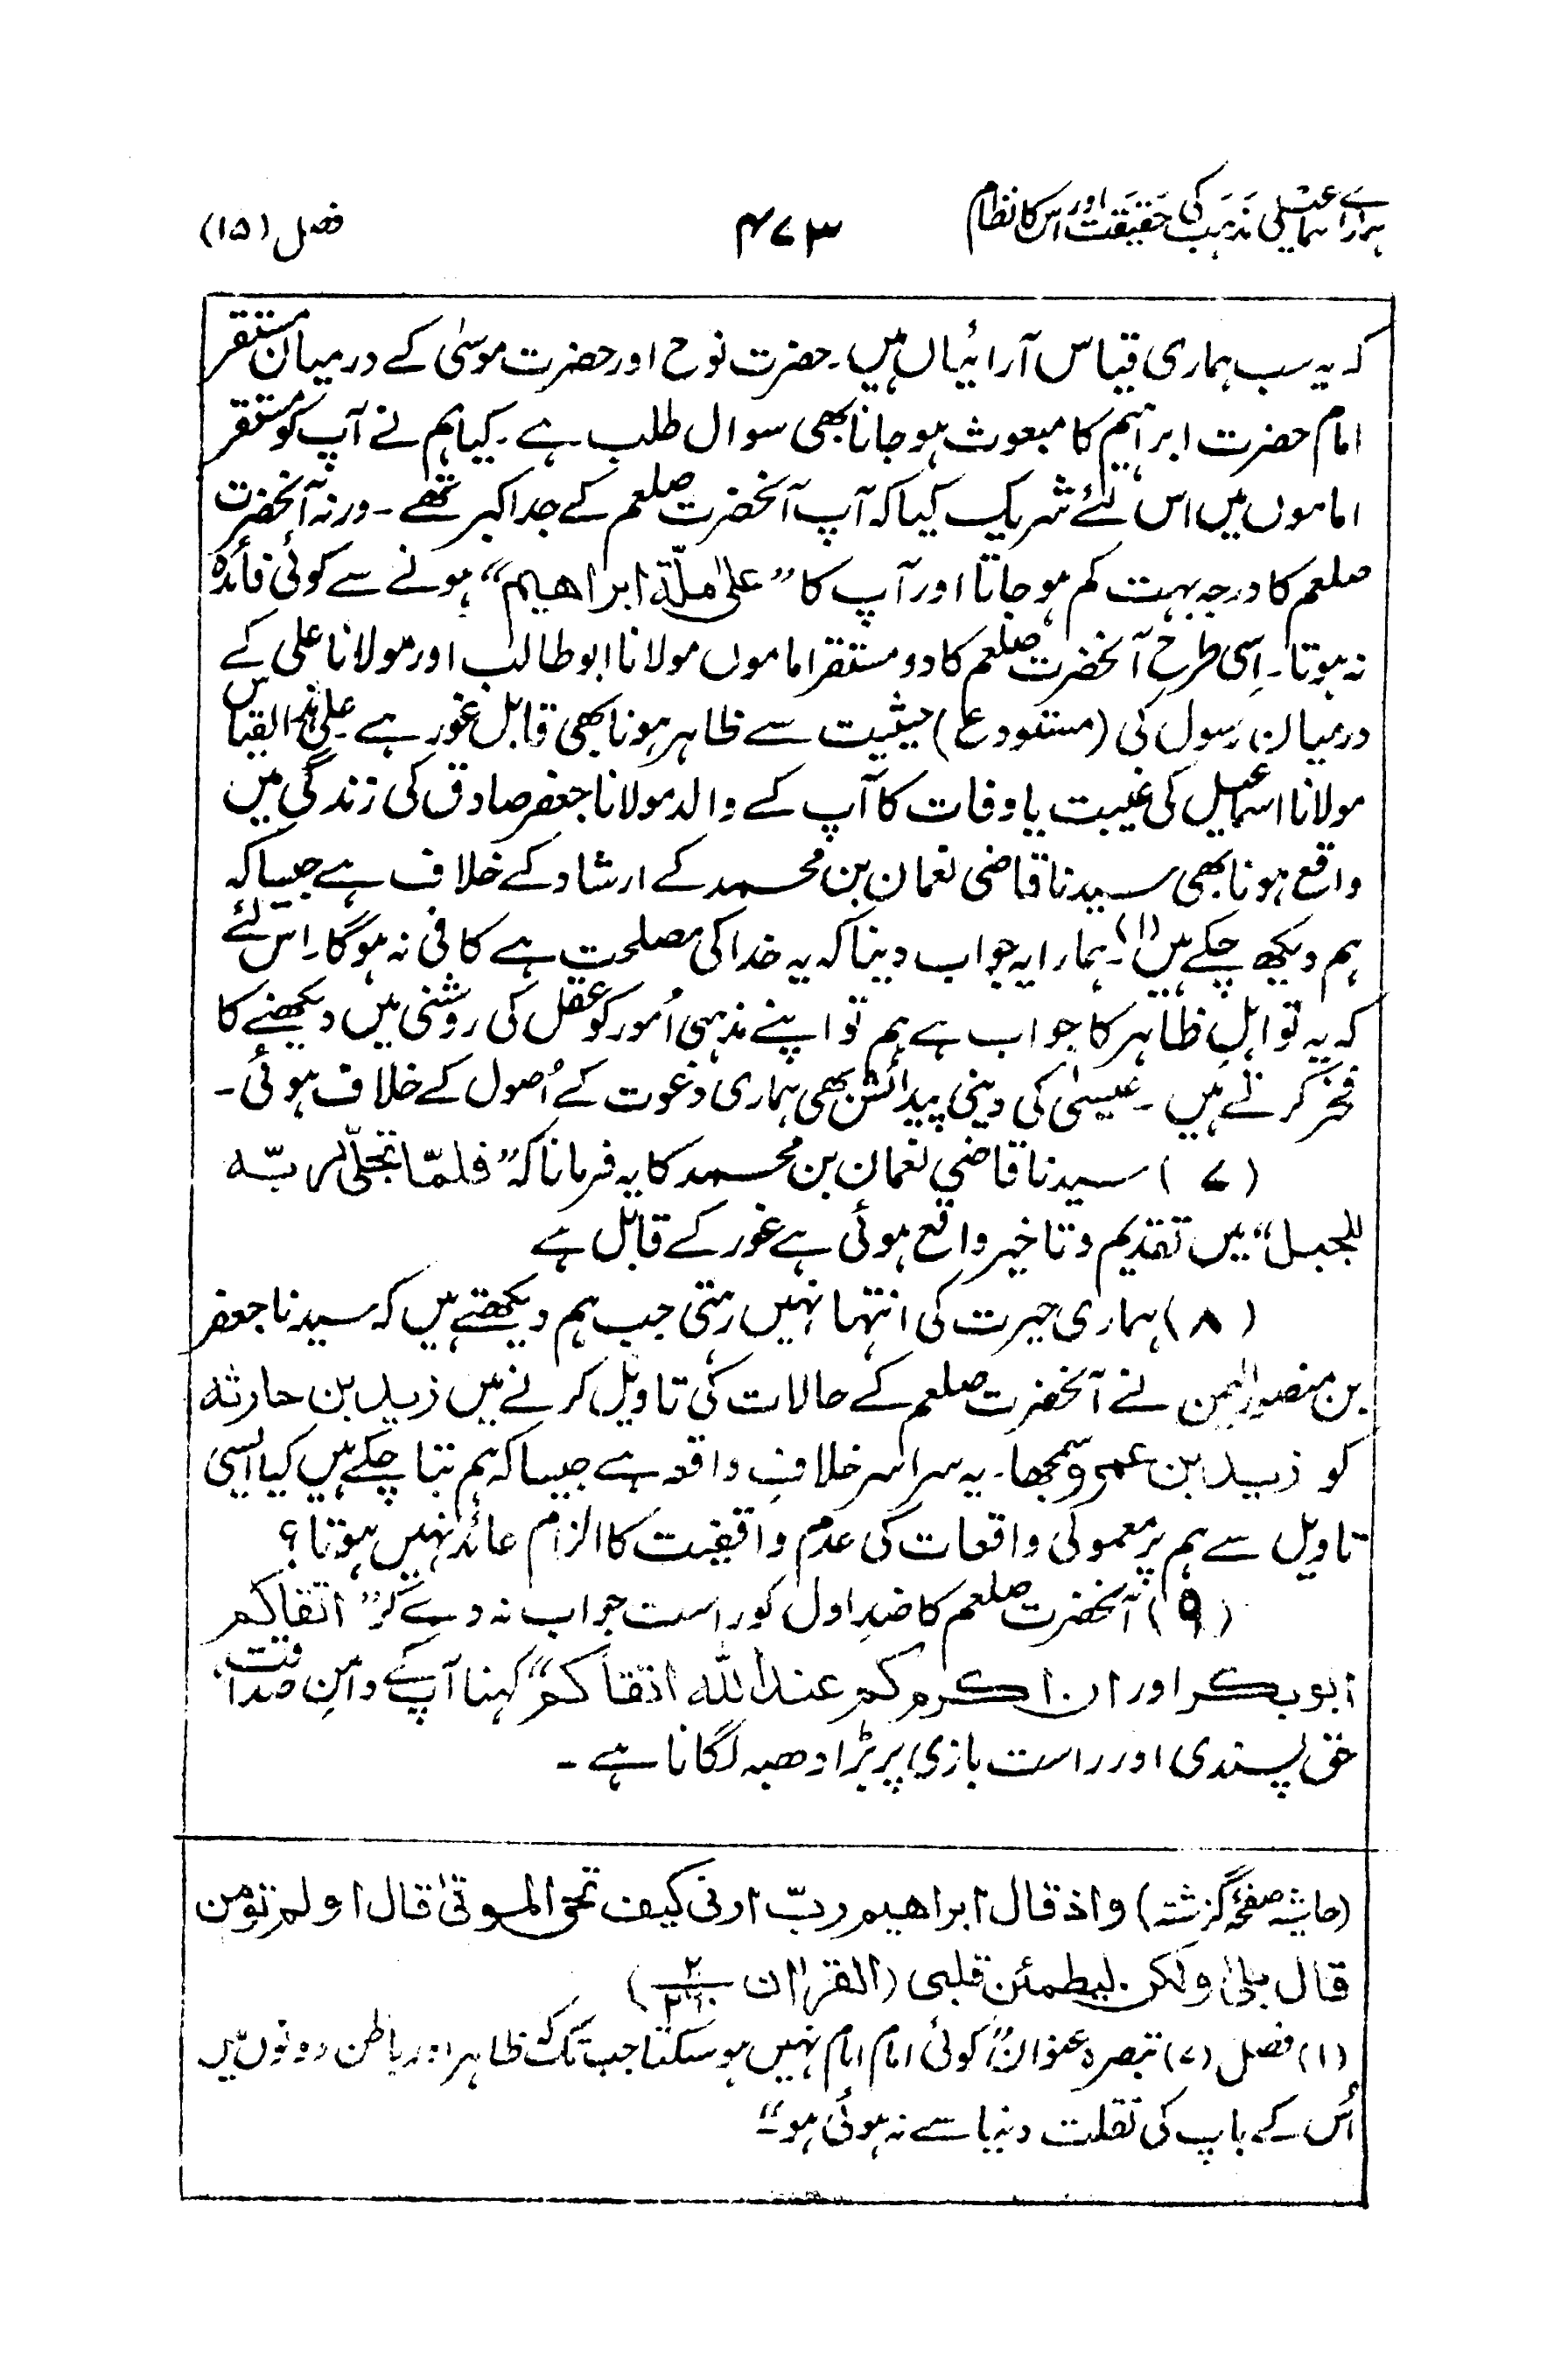 ہمارے اسماعیلی مذہب کی حقیقت اور اس کا نظام
۴۷۳
فصل (۱۵)
کہ یہ سب ہماری قیاس آرائیاں ہیں۔ حضرت نوح اور حضرت موسیٰ کے درمیان مستقر
امام حضرت ابراہیم کا مبعوث ہو جانا بھی سوال طلب ہے۔ کیا ہم نے آپ کو مستقر
اماموں میں اس لئے شریک کیا کہ آپ آنحضرت صلعم کے جد اکبر تھے۔ ورنہ آنحضرت
صلعم کا درجہ بہت کم ہو جاتا اور آپ کا ”علیٰ ملّۃ ابراھیم“ ہونے سے کوئی فائدہ
نہ ہوتا۔ اِسی طرح آنحضرت صلعم کا دو مستقر اماموں مولانا ابوطالب اور مولانا علی کے
درمیان رسول کی (مستودع) حیثیت سے ظاہر ہونا بھی قابل غور ہے علیٰ ہذا القیاس
مولانا اسماعیل کی غیبت یا وفات کا آپ کے والد مولانا جعفر صادق کی زندگی میں
واقع ہونا بھی سیدنا قاضی نعمان بن محمد کے ارشاد کے خلاف ہے جیسا کہ
ہم دیکھ چکے ہیں (۱)۔ ہمارا یہ جواب دینا کہ یہ خدا کی مصلحت ہے کافی نہ ہوگا۔ اس لئے
کہ یہ تو اہلِ ظاہر کا جواب ہے ہم تو اپنے مذہبی اُمور کو عقل کی روشنی میں دیکھنے کا
فخر کرتے ہیں۔ عیسیٰ کی دینی پیدائش بھی ہماری دعوت کے اُصول کے خلاف ہوئی۔
(۷) سیدنا قاضی نعمان بن محمد کا یہ فرمانا کہ ”فلمّا تجلّیٰ ربّہ
للجبل“ میں تقدیم و تاخیر واقع ہوئی ہے غور کے قابل ہے
(۸) ہماری حیرت کی انتہا نہیں رہتی جب ہم دیکھتے ہیں کہ سیدنا جعفر
بن منصور الیمن نے آنحضرت صلعم کے حالات کی تاویل کرنے میں زید بن حارثہ
کو زید بن عمرو سمجھا۔ یہ سراسر خلافِ واقعہ ہے جیسا کہ ہم بتا چکے ہیں کیا ایسی
تاویل سے ہم پر معمولی واقعات کی عدم واقفیت کا الزام عائد نہیں ہوتا؟
(۹) آنحضرت صلعم کا ضدِ اول کو راست جواب نہ دے کر ”اتقاکم
ابوبکر اور ان اکرمکم عند اللہ اتقاکم“ کہنا آپ کے دامنِ صداقت
حق پسندی اور راست بازی پر بڑا دھبہ لگانا ہے۔
(حاشیہ صفحۂ گزشتہ) واذ قال ابراھیم ربّ ارنی کیف تحی الموتیٰ قال اولم تومن
قال بلیٰ ولکن لیطمئن قلبی (القراٰن ۲/۲۶۰)
(۱) فصل (۷) تبصرہ عنوان ”کوئی امام امام نہیں ہو سکتا جب تک ظاہر اور باطن دونوں میں
اُس کے باپ کی نقلت دنیا سے نہ ہوئی ہو“